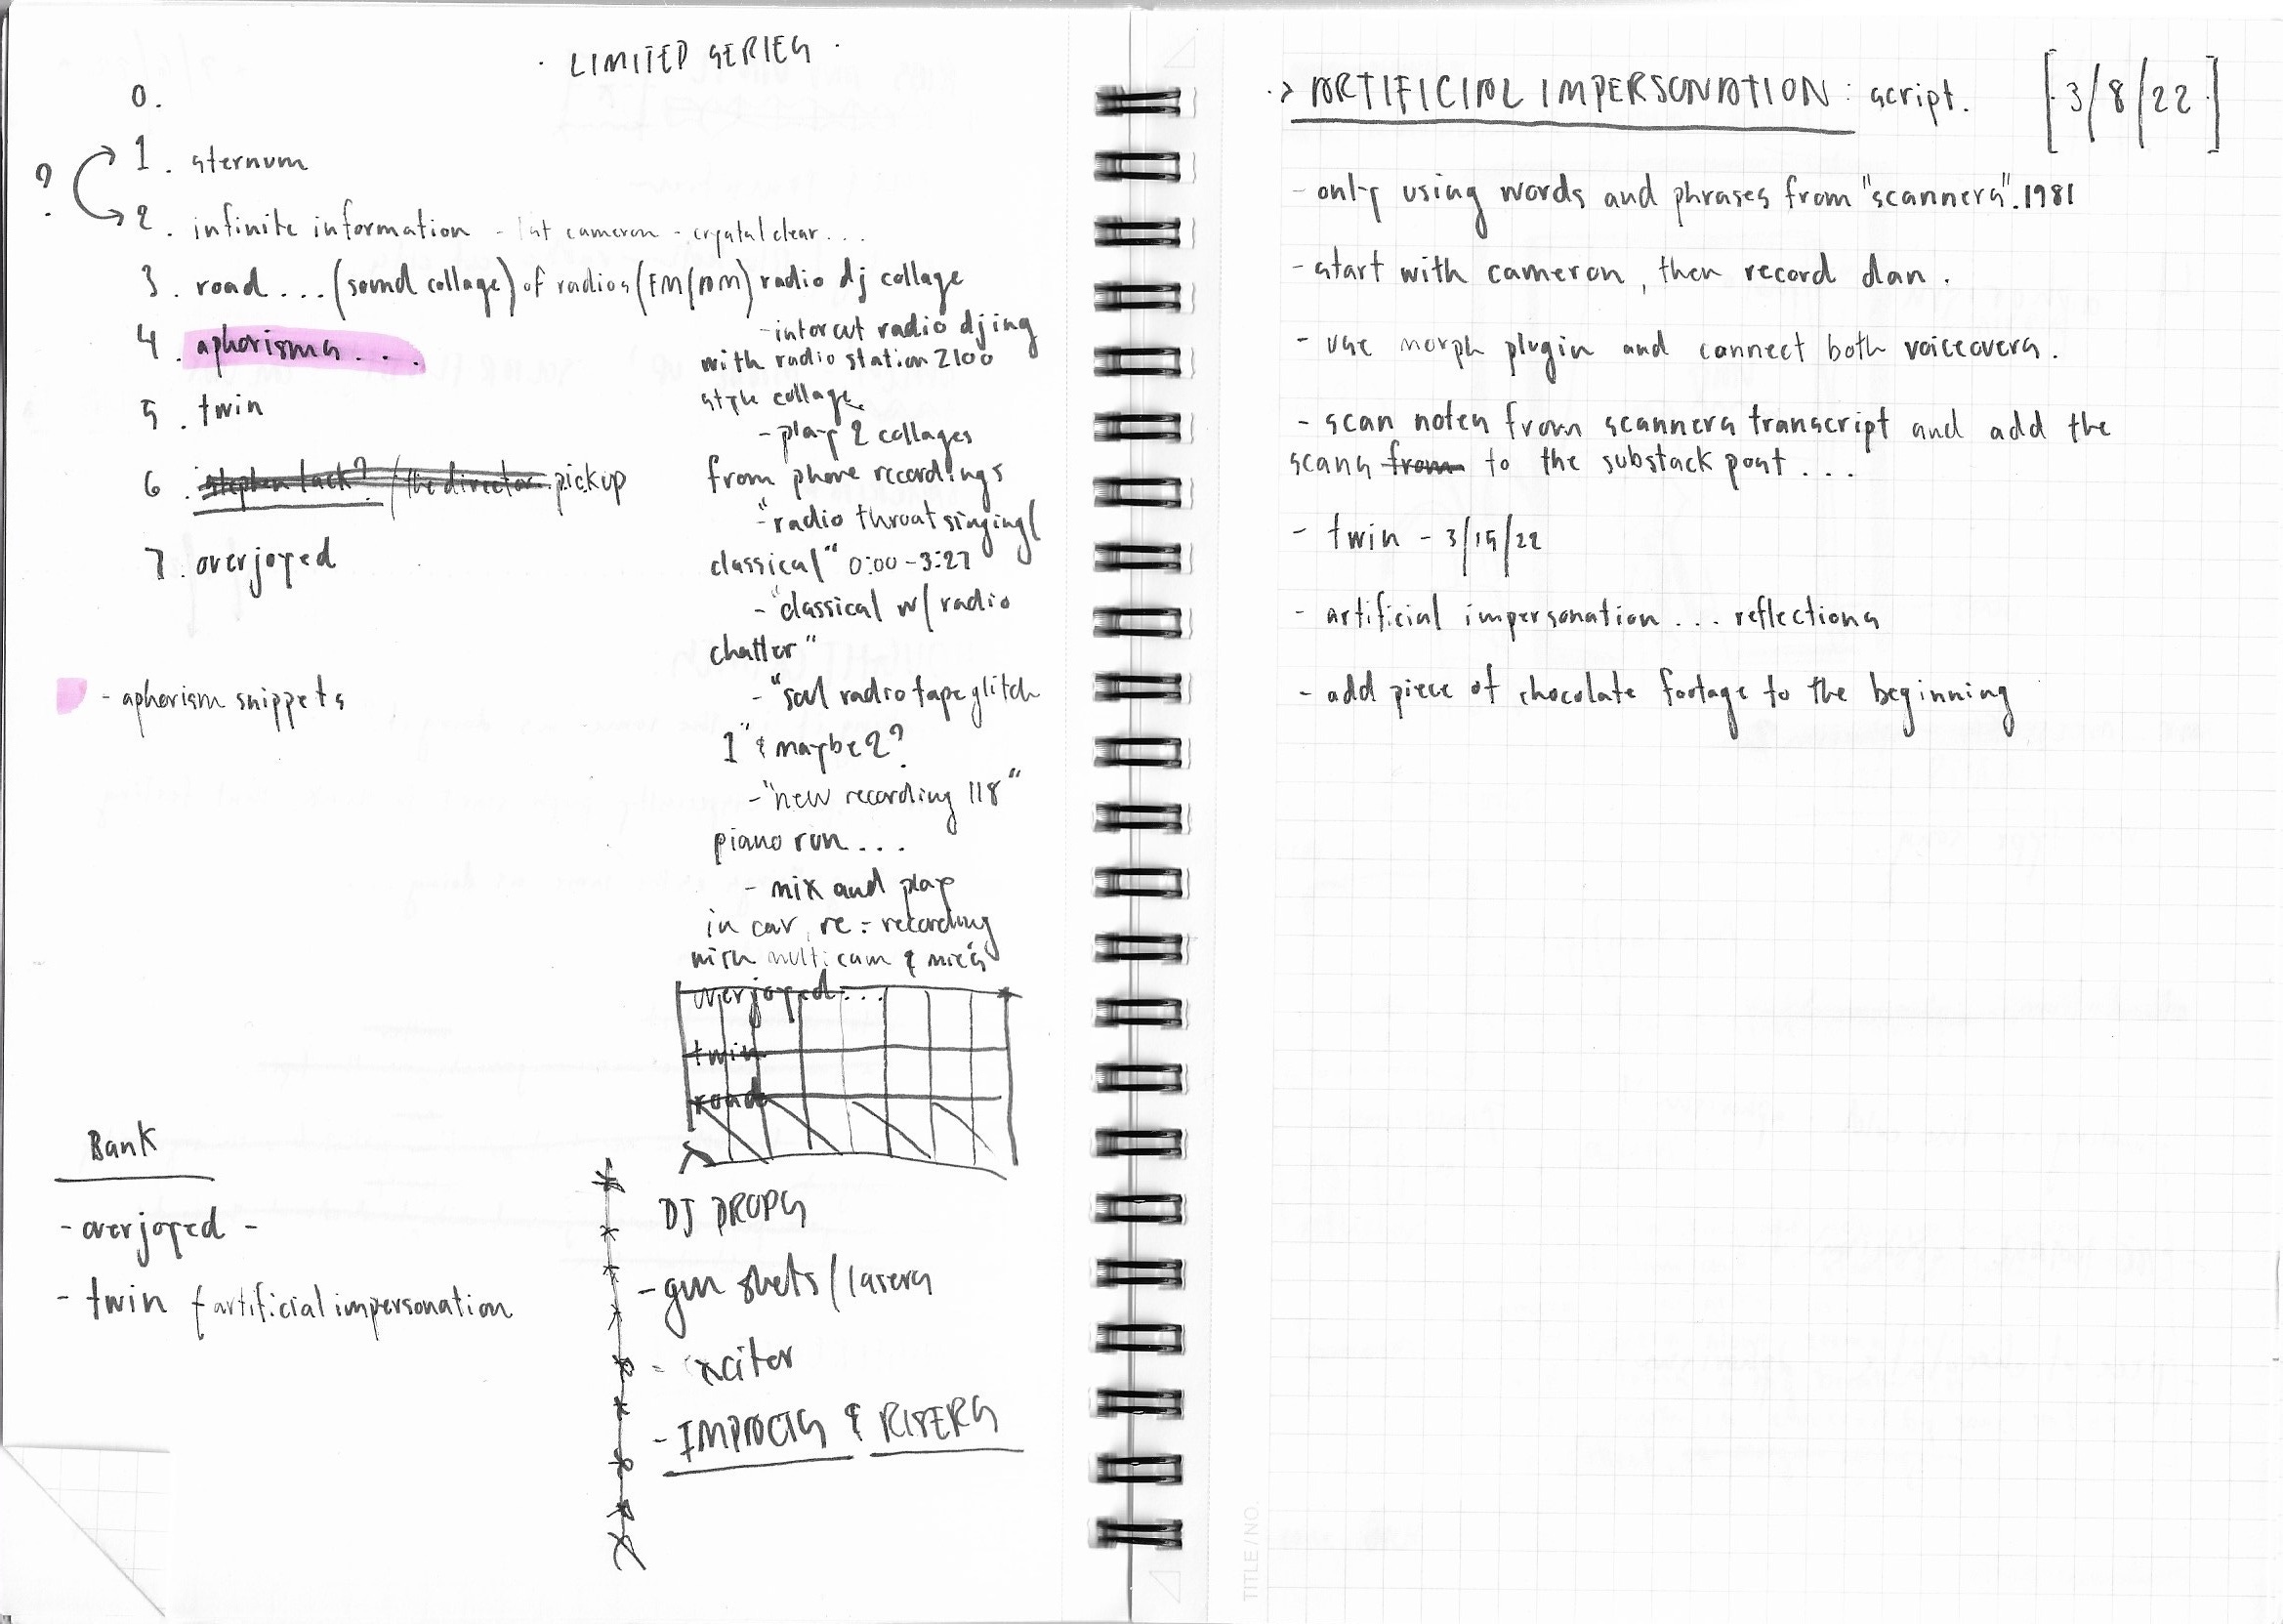 · LIMITED SERIES ·
0.
?
1. sternum
2. infinite information - 1st cameron - crystal clear...
3. road... (sound collage) of radios (FM/AM) radio dj collage
-intercut radio djing
with radio station 2100
style collage
- play 2 collages
from phone recordings
- "radio throat singing/
classical" 0:00-3:27
- "classical w/ radio
chatter"
- "soul radio tape glitch
1" & maybe 2?
- "new recording 118"
piano run...
- mix and play
in car, re-recording
with multicam & mic's
overjoyed...
twin
road
4. aphorisms....
5. twin
6. stephen lack? / the director pickup
7. overjoyed
- aphorism snippets
Bank
- overjoyed -
- twin & artificial impersonation
DJ DROPS
- gun shots/lasers
- xciter
- IMPACTS & RISERS
·> ARTIFICIAL IMPERSONATION: script. [3/8/22]
- only using words and phrases from "scanners". 1981
- start with cameron, then record dan.
- use morph plugin and connect both voiceovers.
- scan notes from scanners transcript and add the
scans from to the substack post...
- twin - 3/15/22
- artificial impersonation... reflections
- add piece of chocolate footage to the beginning
TITLE/NO.